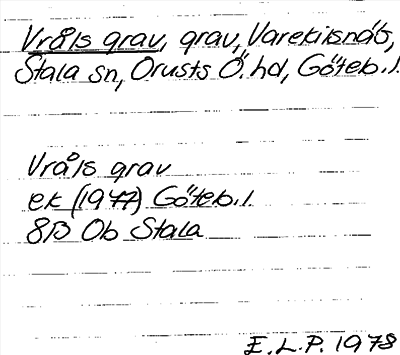 Vråls grav, grav, Varekilsnäs,
Stala sn, Orusts Ö. hd, Göteb. l.
Vråls grav
ek (1977) Göteb. l.
8B Ob Stala
E.L.P. 1978